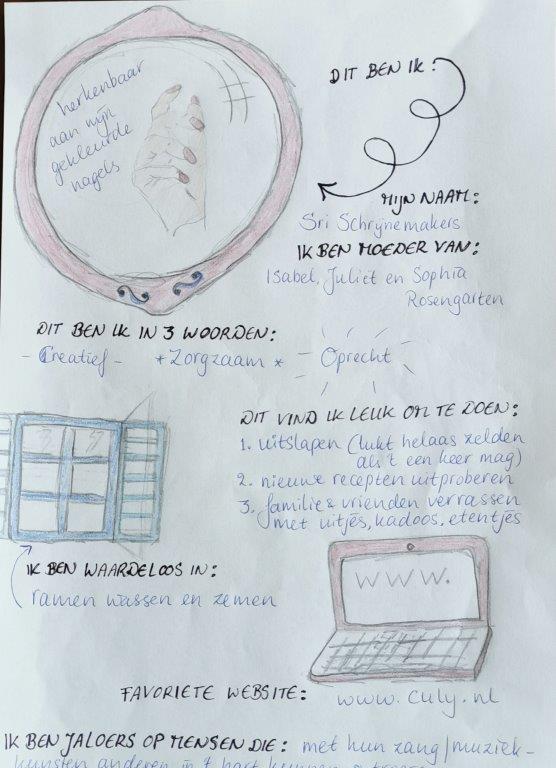 herkenbaar
aan mijn
gekleurde
nagels
DIT BEN IK:
MIJN NAAM:
Sri Schrijnemakers
IK BEN MOEDER VAN:
Isabel, Juliët en Sophia
Rosengarten
DIT BEN IK IN 3 WOORDEN:
- Creatief - * Zorgzaam * Oprecht
DIT VIND IK LEUK OM TE DOEN:
1. uitslapen (lukt helaas zelden
als 't een keer mag)
2. nieuwe recepten uitproberen
3. familie & vrienden verrassen
met uitjes, kadoos, etentjes
IK BEN WAARDELOOS IN:
ramen wassen en zemen
www.
FAVORIETE WEBSITE: www.culy.nl
IK BEN JALOERS OP MENSEN DIE: met hun zang/muziek-
kunsten anderen in 't hart kunnen